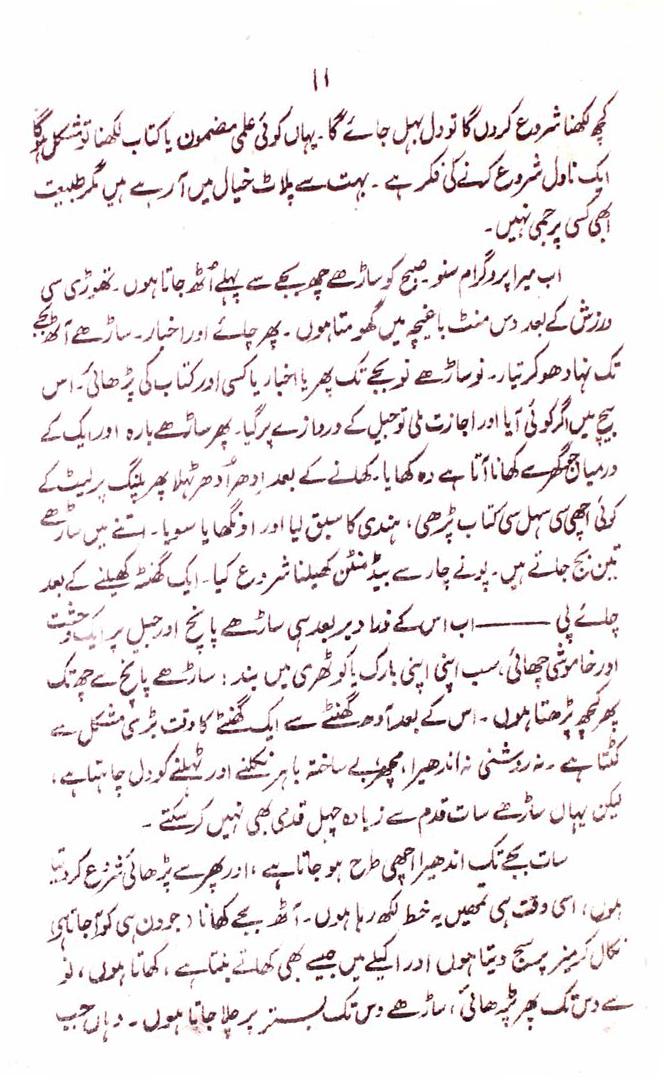 ۱۱
کچھ لکھنا شروع کروں گا تو دل بہل جائے گا۔ یہاں کوئی علمی مضمون یا کتاب لکھنا تو مشکل ہوگا
ایک ناول شروع کرنے کی فکر ہے۔ بہت سے پلاٹ خیال میں آ رہے ہیں مگر طبیعت
ابھی کسی پر جمی نہیں۔
اب میرا پروگرام سنو۔ صبح کو ساڑھے چھ بجے سے پہلے اُٹھ جاتا ہوں۔ تھوڑی سی
ورزش کے بعد دس منٹ باغیچہ میں گھومتا ہوں۔ پھر چائے اور اخبار۔ ساڑھے آٹھ بجے
تک نہا دھو کر تیار۔ نو ساڑھے نو بجے تک پھر یا اخبار یا کسی اور کتاب کی پڑھائی۔ اس
بیچ میں اگر کوئی آیا اور اجازت ملی تو جیل کے دروازے پر گیا۔ پھر ساڑھے بارہ اور ایک کے
درمیان جو گھر سے کھانا آتا ہے وہ کھایا۔ کھانے کے بعد اِدھر اُدھر ٹہلا پھر پلنگ پر لیٹ کے
کوئی اچھی سی سہل سی کتاب پڑھی، ہندی کا سبق لیا اور اونگھا یا سویا۔ اتنے میں ساڑھے
تین بج جاتے ہیں۔ پونے چار سے بیڈمنٹن کھیلنا شروع کیا۔ ایک گھنٹہ کھیلنے کے بعد
چائے پی ——— اب اس کے ذرا دیر بعد ہی ساڑھے پانچ اور جیل پر ایک وحشت
اور خاموشی چھائی، سب اپنی اپنی بارک یا کوٹھری میں بند؛ ساڑھے پانچ سے چھ تک
پھر کچھ پڑھتا ہوں۔ اس کے بعد آدھ گھنٹے سے ایک گھنٹے کا وقت بڑی مشکل سے
کٹتا ہے۔ نہ روشنی نہ اندھیرا، مجھے بے ساختہ باہر نکلنے اور ٹہلنے کو دل چاہتا ہے،
لیکن یہاں ساڑھے سات قدم سے زیادہ چہل قدمی بھی نہیں کر سکتے۔
سات بجے تک اندھیرا اچھی طرح ہو جاتا ہے، اور پھر سے پڑھائی شروع کر دیتا
ہوں، اسی وقت ہی تمھیں یہ خط لکھ رہا ہوں۔ آٹھ بجے کھانا (جو دن ہی کو آ جاتا ہی
نکال کر میز پر سج دیتا ہوں اور اکیلے میں جیسے بھی کھاتے بنتا ہے، کھاتا ہوں، نو
سے دس تک پھر پڑھائی، ساڑھے دس تک بستر پر چلا جاتا ہوں۔ وہاں جب